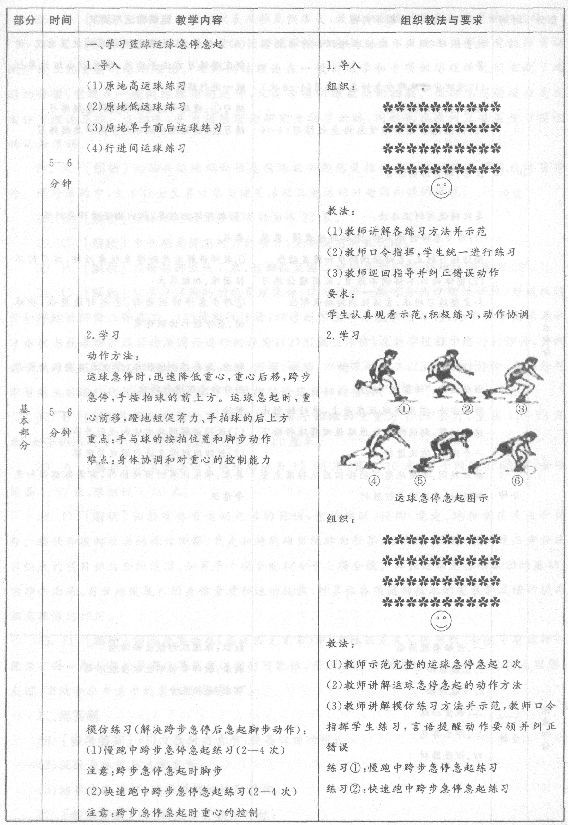 部分 时间 教学内容 组织教法与要求
基本部分
5—6
分钟
一、学习篮球运球急停急起
1.导入
(1)原地高运球练习
(2)原地低运球练习
(3)原地单手前后运球练习
(4)行进间运球练习
1.导入
组织:
教法:
(1)教师讲解各练习方法并示范
(2)教师口令指挥,学生统一进行练习
(3)教师巡回指导并纠正错误动作
要求:
学生认真观看示范,积极练习,动作协调
5—6
分钟
2.学习
动作方法:
运球急停时,迅速降低重心,重心后移,跨步
急停,手按拍球的前上方。运球急起时,重
心前移,蹬地短促有力,手拍球的后上方
重点:手与球的按拍位置和脚步动作
难点:身体协调和对重心的控制能力
模仿练习(解决跨步急停后急起脚步动作):
(1)慢跑中跨步急停急起练习(2—4次)
注意:跨步急停急起时脚步
(2)快速跑中跨步急停急起练习(2—4次)
注意:跨步急停急起时重心的控制
2.学习
① ② ③
④ ⑤ ⑥
运球急停急起图示
组织:
教法:
(1)教师示范完整的运球急停急起2次
(2)教师讲解运球急停急起的动作方法
(3)教师讲解模仿练习方法并示范,教师口令
指挥学生练习,言语提醒动作要领并纠正
错误
练习①:慢跑中跨步急停急起练习
练习②:快速跑中跨步急停急起练习